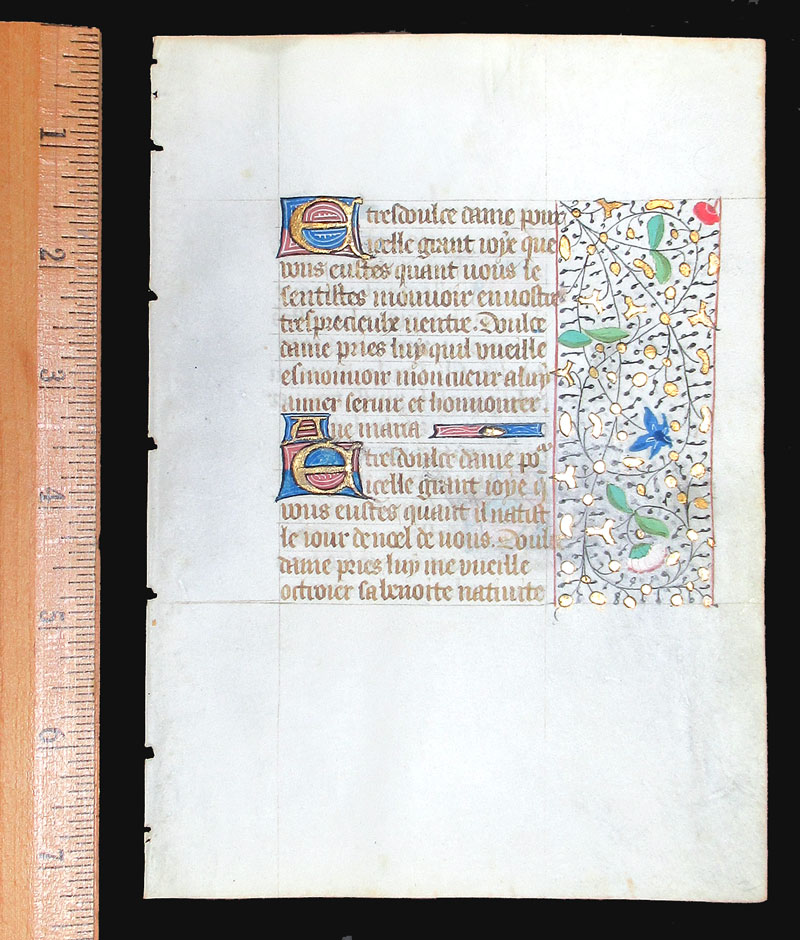 E tresdoulce dame pour
icelle grant ioye que
vous eustes quant vous le
sentistes mouuoir en vostre
tresprecieulx ventre. Doulce
dame pries luy quil vueille
esmouuoir mon cueur a luy
amer seruir et honnourer.
Aue maria
E tresdoulce dame po͛
icelle grant ioye q̄
vous eustes quant il nasqt
le iour de noel de vous. Doulce
dame pries luy me vueille
octroier sa benoite natiuite
1
2
3
4
5
6
7